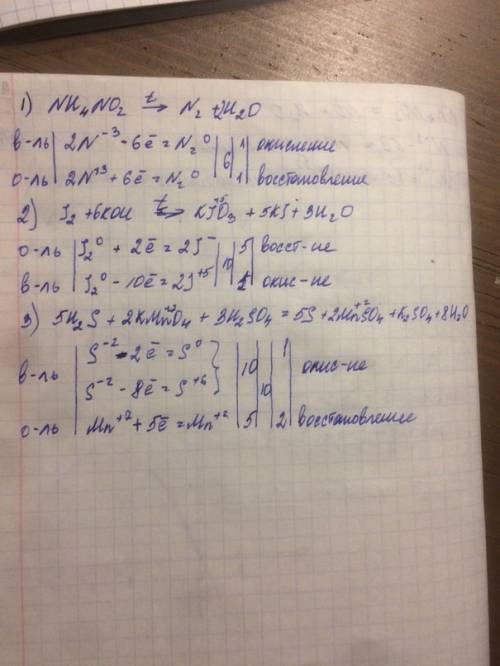 1) NH₄NO₂ —t→ N₂ + 2H₂O
в-ль | 2N⁻³ - 6ē = N₂⁰ | 6 | 1 | окисление
о-ль | 2N⁺³ + 6ē = N₂⁰ | 1 | восстановление
2) J₂ + 6KOH —t→ KJ⁺⁵O₃ + 5KJ + 3H₂O
о-ль | J₂⁰ + 2ē = 2J⁻ | 10 | 5 | восст-ие
в-ль | J₂⁰ - 10ē = 2J⁺⁵ | 1 | окис-ие
3) 5H₂S + 2KMn⁺⁷O₄ + 3H₂SO₄ = 5S + 2Mn⁺²SO₄ + K₂SO₄ + 8H₂O
в-ль | S⁻² - 2ē = S⁰ } | 10 | 10 | 1 | окис-ие
S⁻² - 8ē = S⁺⁶ }
о-ль | Mn⁺⁷ + 5ē = Mn⁺² | 5 | 2 | восстановление